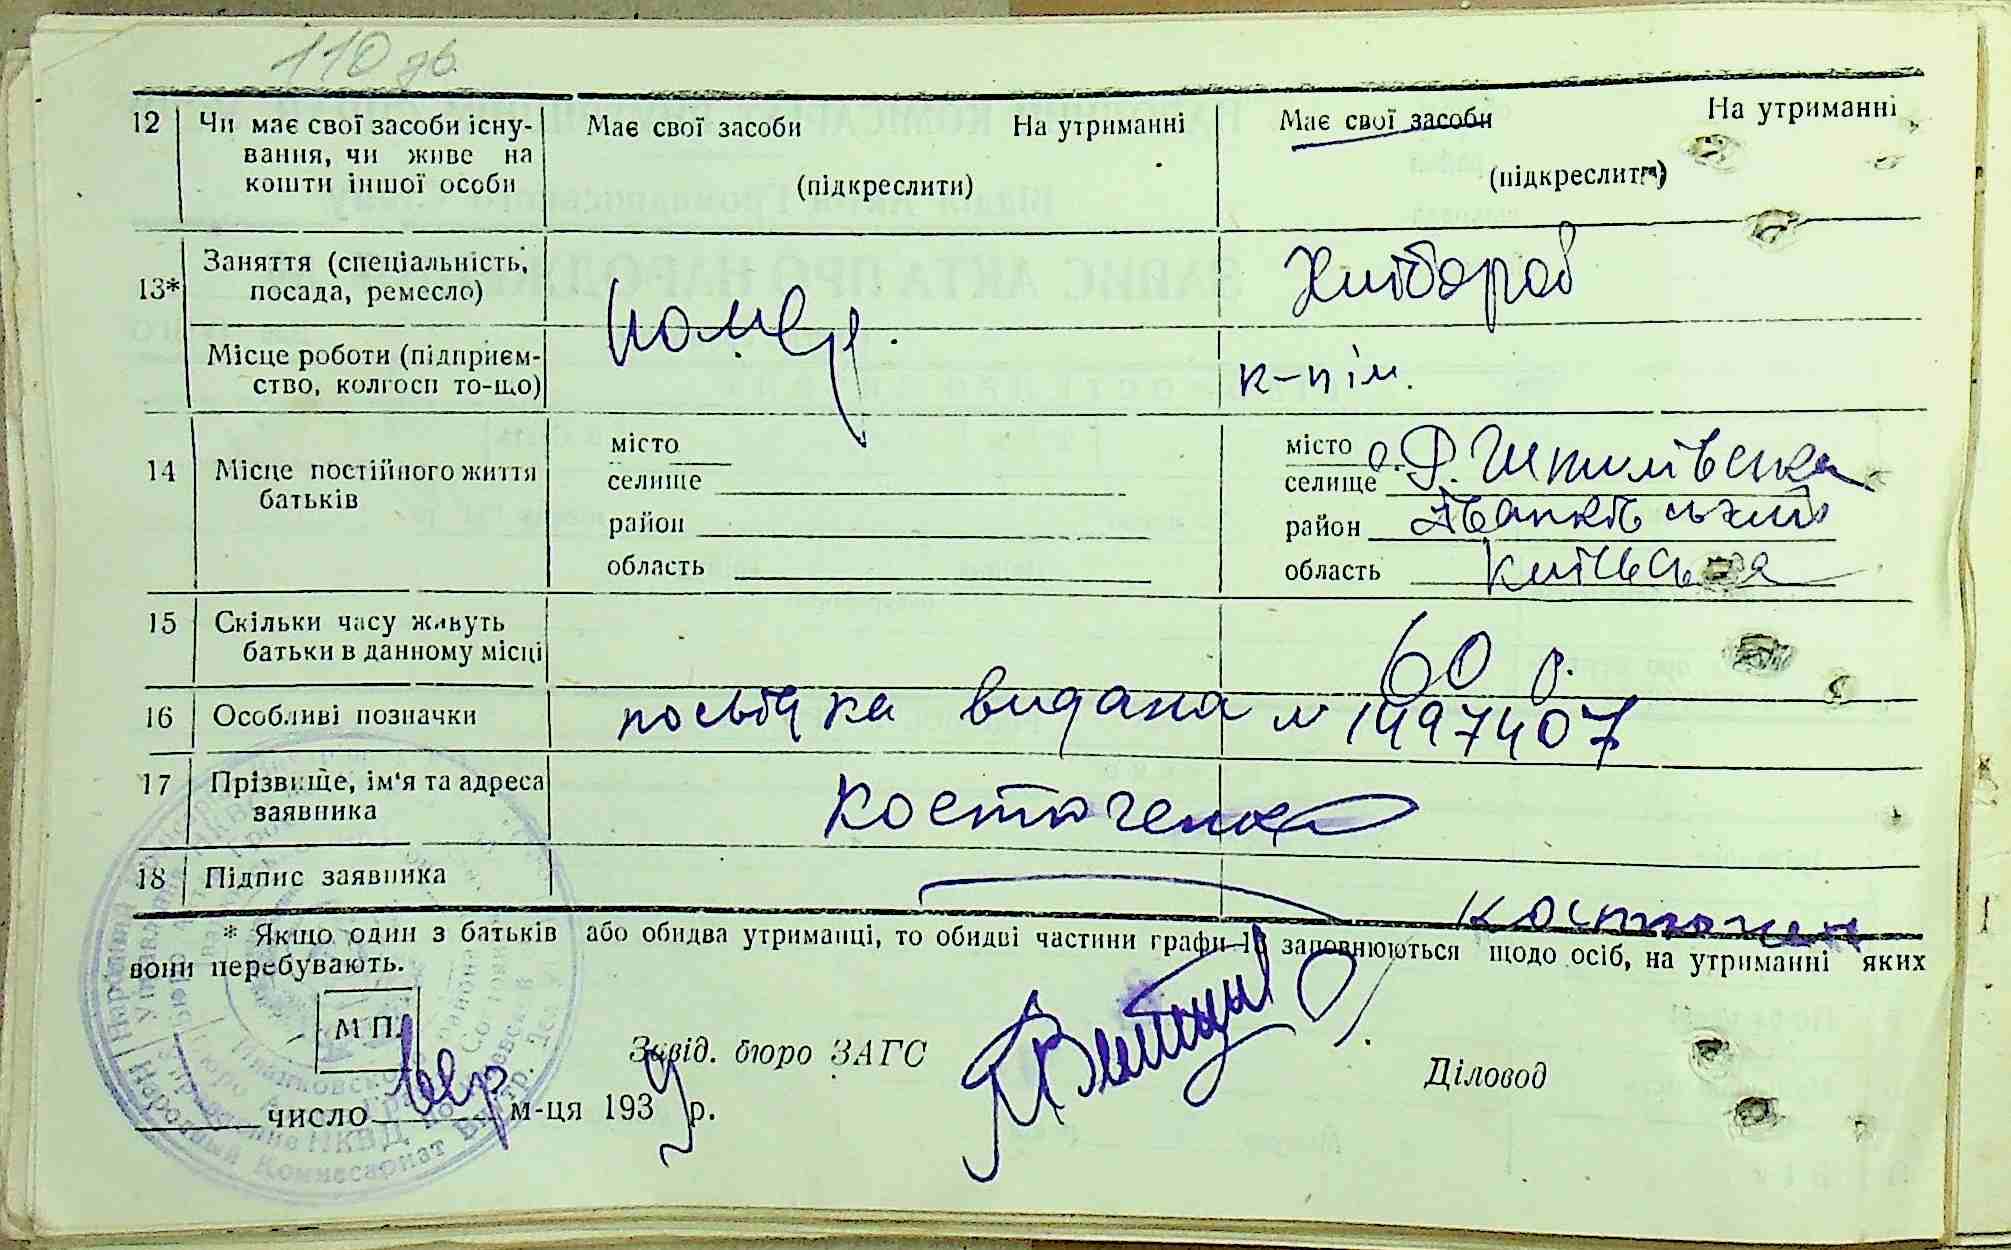 110 зв.
12 Чи має свої засоби існу- Має свої засоби На утриманні Має свої засоби На утриманні
вання, чи живе на
кошти іншої особи (підкреслити) (підкреслити)
13* Заняття (спеціальність, Хлібороб
посада, ремесло) помер.
Місце роботи (підприєм- к-пім.
ство, колгосп то-що)
14 Місце постійного життя місто місто
батьків селище селище
район район Іванківський
область область Київська
15 Скільки часу живуть 60 р.
батьки в данному місці
16 Особливі позначки посвідка видана № 1497407
17 Прізвище, ім'я та адреса Костюченко
заявника
18 Підпис заявника Костючен
* Якщо один з батьків або обидва утриманці, то обидві частини графи 13 заповнюються щодо осіб, на утриманні яких
вони перебувають.
М П. Завід. бюро ЗАГС Діловод
число м-ця 1939 р.